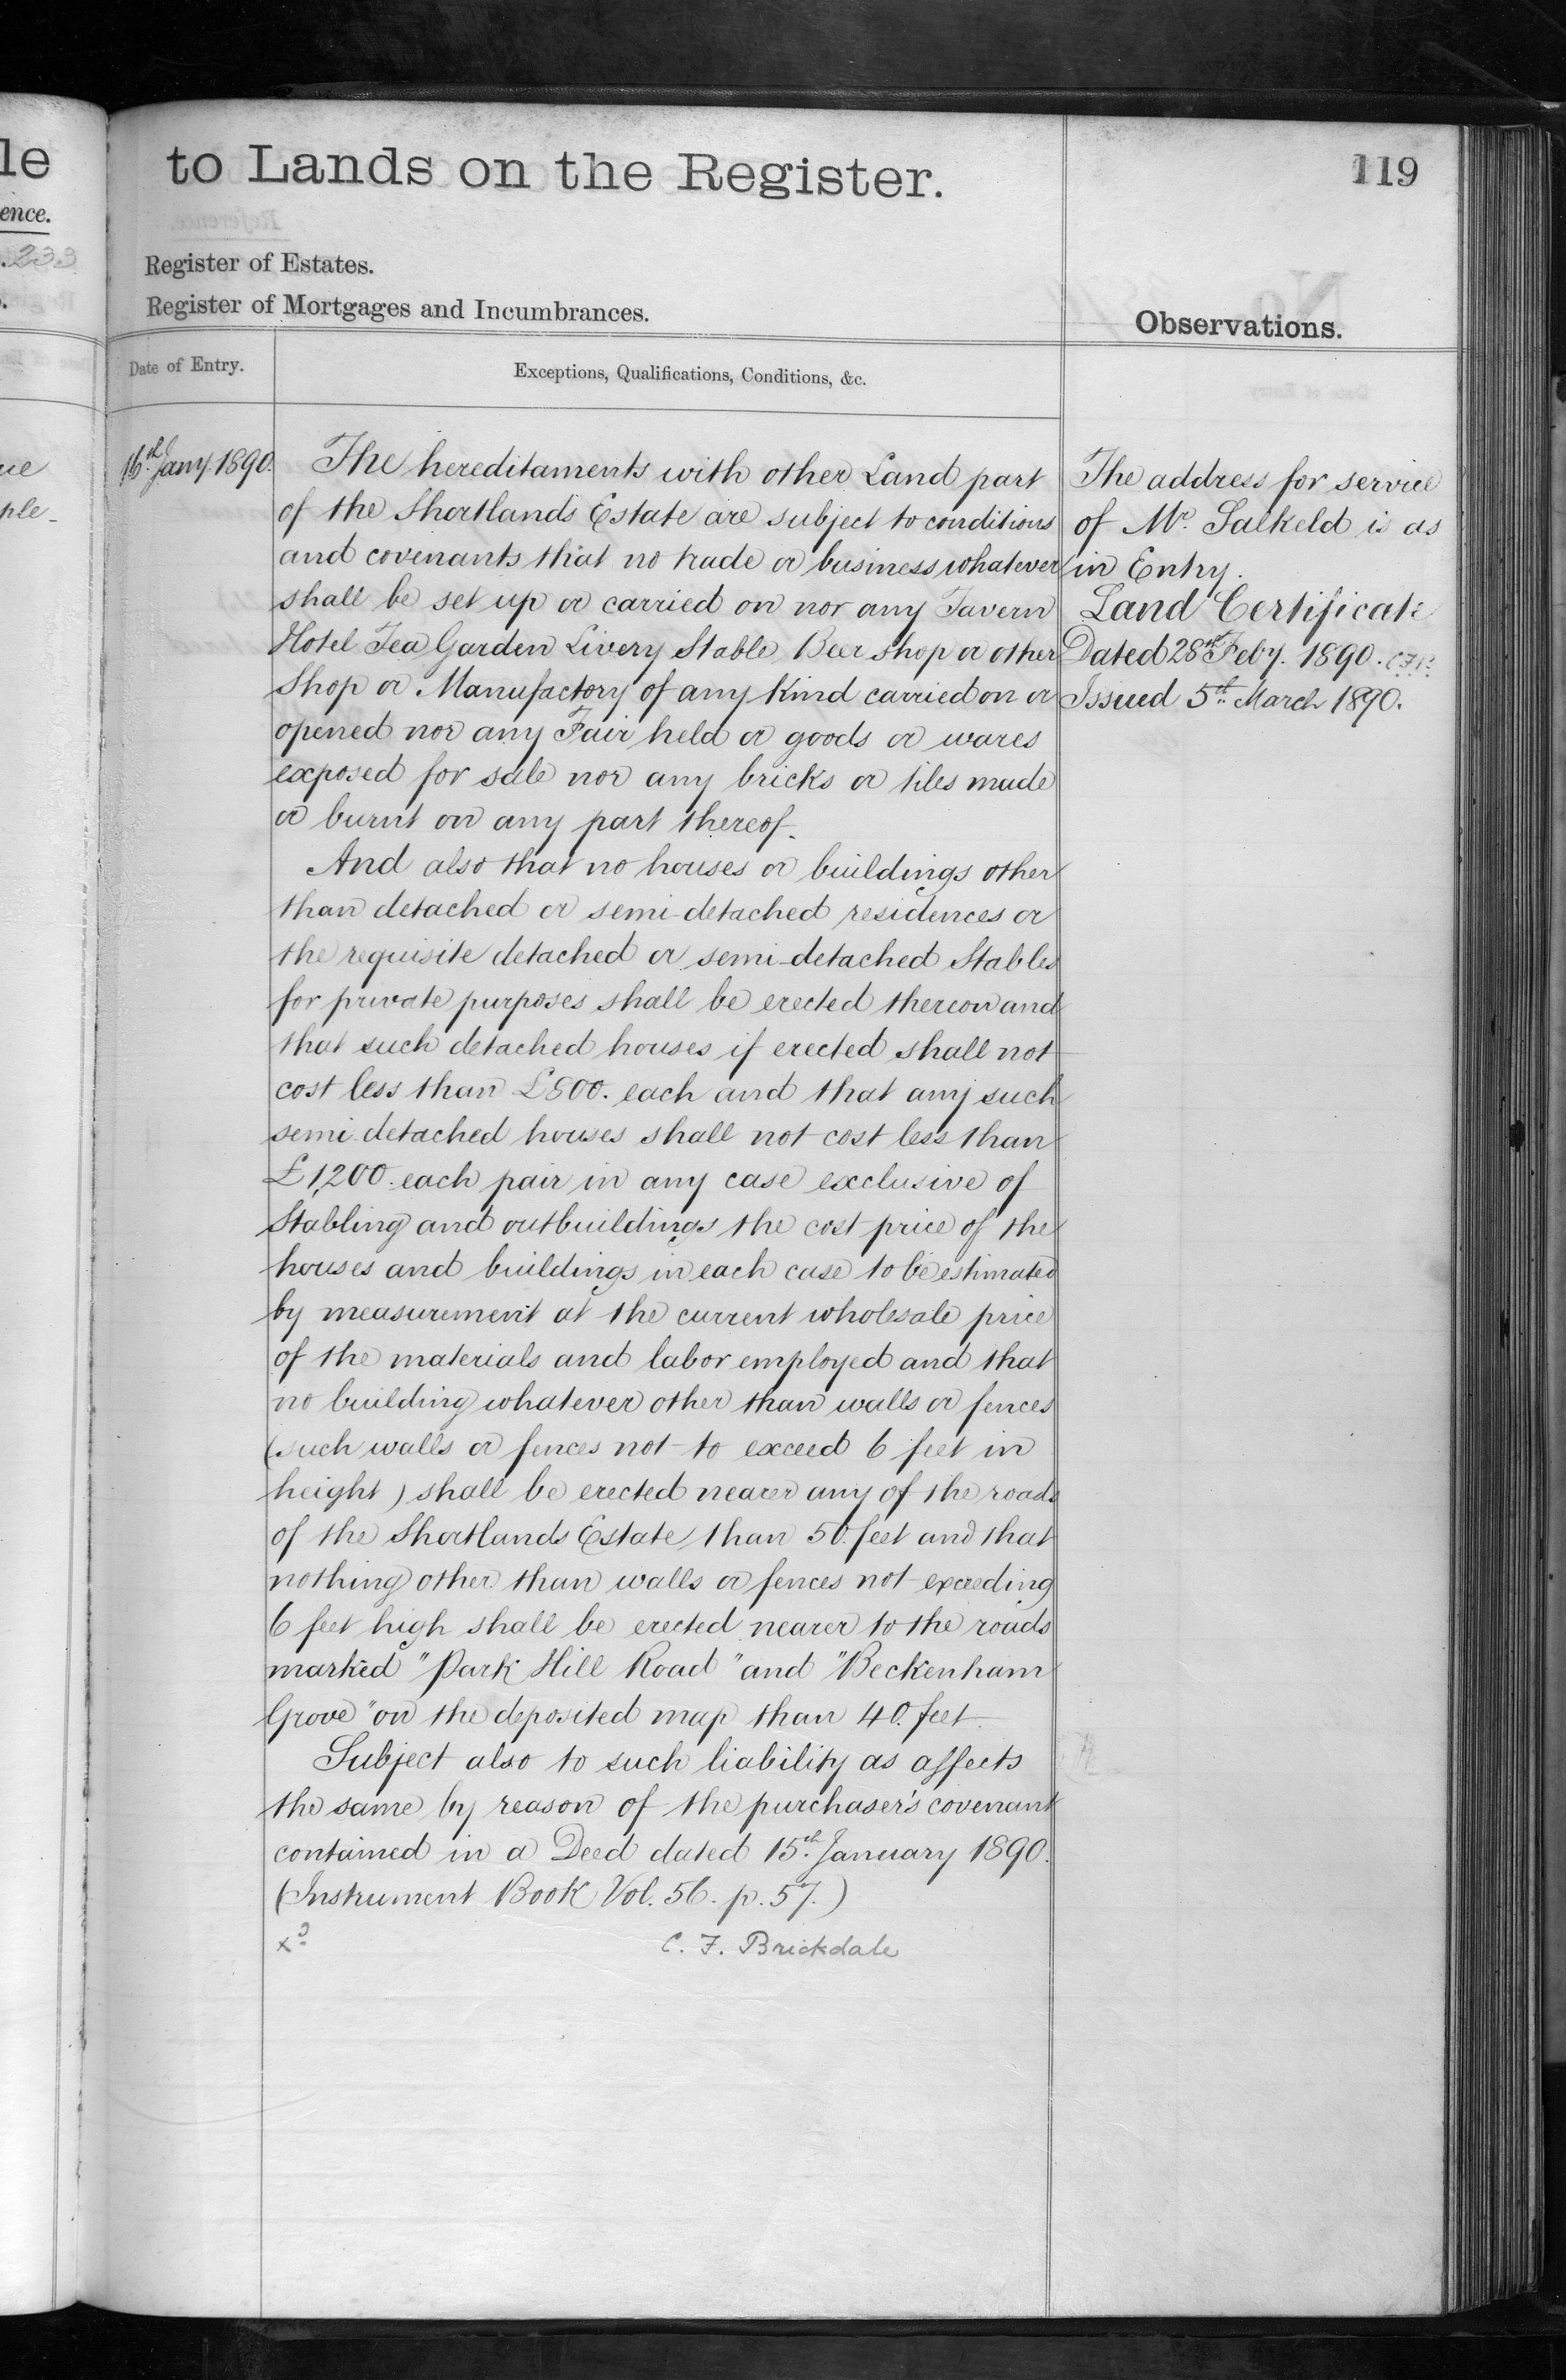 le
ence.
.233
ue
ple-
to Lands on the Register.
119
Register of Estates.
Register of Mortgages and Incumbrances.
Observations.
Date of Entry.
Exceptions, Qualifications, Conditions, &c.
16.th Jany. 1890.
The hereditaments with other Land part
of the Shortlands Estate are subject to conditions
and covenants that no trade or business whatever
shall be set up or carried on nor any Tavern
Hotel Tea Garden Livery Stable Beer shop or other
Shop or Manufactory of any Kind carried on or
opened nor any Fair held or goods or wares
exposed for sale nor any bricks or tiles made
or burnt on any part thereof.
And also that no houses or buildings other
than detached or semi-detached residences or
the requisite detached or semi-detached Stables
for private purposes shall be erected thereon and
that such detached houses if erected shall not
cost less than £800. each and that any such
semi detached houses shall not cost less than
£1,200. each pair in any case exclusive of
Stabling and outbuildings the cost price of the
houses and buildings in each case to be estimated
by measurement at the current wholesale price
of the materials and labor employed and that
no building whatever other than walls or fences
(such walls or fences not to exceed 6 feet in
height) shall be erected nearer any of the roads
of the Shortlands Estate than 50. feet and that
nothing other than walls or fences not exceeding
6 feet high shall be erected nearer to the roads
marked "Park Hill Road" and "Beckenham
Grove" on the deposited map than 40. feet.
Subject also to such liability as affects
the same by reason of the purchaser's covenant
contained in a Deed dated 15.th January 1890.
(Instrument Book Vol. 56. p. 57.)
C. F. Brickdale
The address for service
of Mr. Salkeld is as
in Entry.
Land Certificate
Dated 28th Feby. 1890. C.F.B.
Issued 5th March 1890.